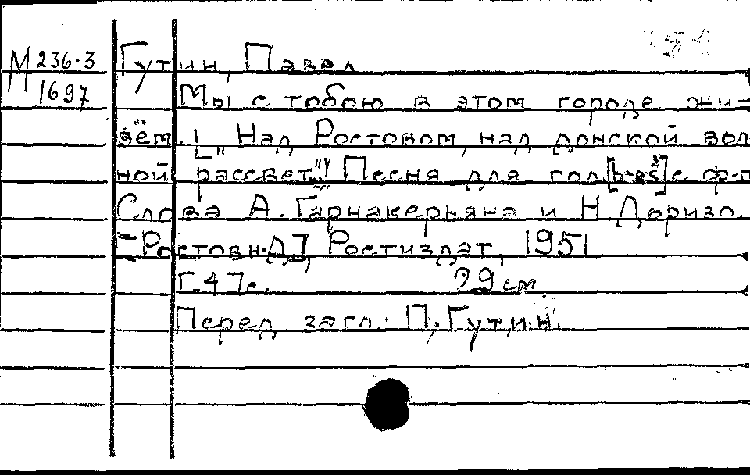 М 236-3 Гутин, Павел
1697 Мы с тобою в этом городе жи-
вём. ["Над Ростовом, над донской вол
ной рассвет..."] Песня для гол. [b-es] с ф-п
Слова А. Гарнакерьяна и Н. Доризо.
[Ростов н-Д], Ростиздат, 1951
[4] с. 29 см.
Перед загл.: П. Гутин.